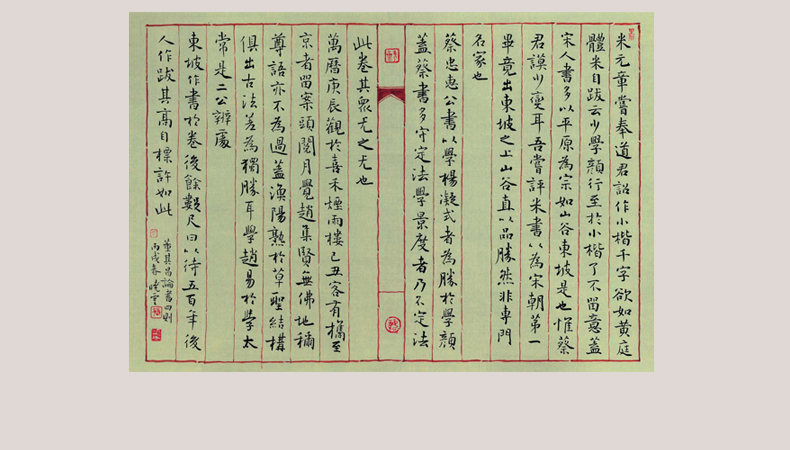 米元章嘗奉道君詔作小楷千字欲如黃庭
體米自跋云少學顏行至於小楷了不留意蓋
宋人書多以平原為宗如山谷東坡是也惟蔡
君謨少變耳吾嘗評米書以為宋朝第一
畢竟出東坡之上山谷直以品勝然非專門
名家也
蔡忠惠公書以學楊凝式者為勝於學顏
蓋蔡書多守定法學景度者乃不定法
此卷其最尤之尤也
萬曆庚辰觀於喜禾煙雨樓己丑客有攜至
京者留案頭閱月覺趙集賢無佛地稱
尊語亦不為過蓋漁陽熟於草聖結構
俱出古法差為獨勝耳學趙易於學太
常是二公辨處
東坡作書於卷後餘數尺曰以待五百年後
人作跋其高自標許如此
董其昌論書四則
丙戌春曉雲